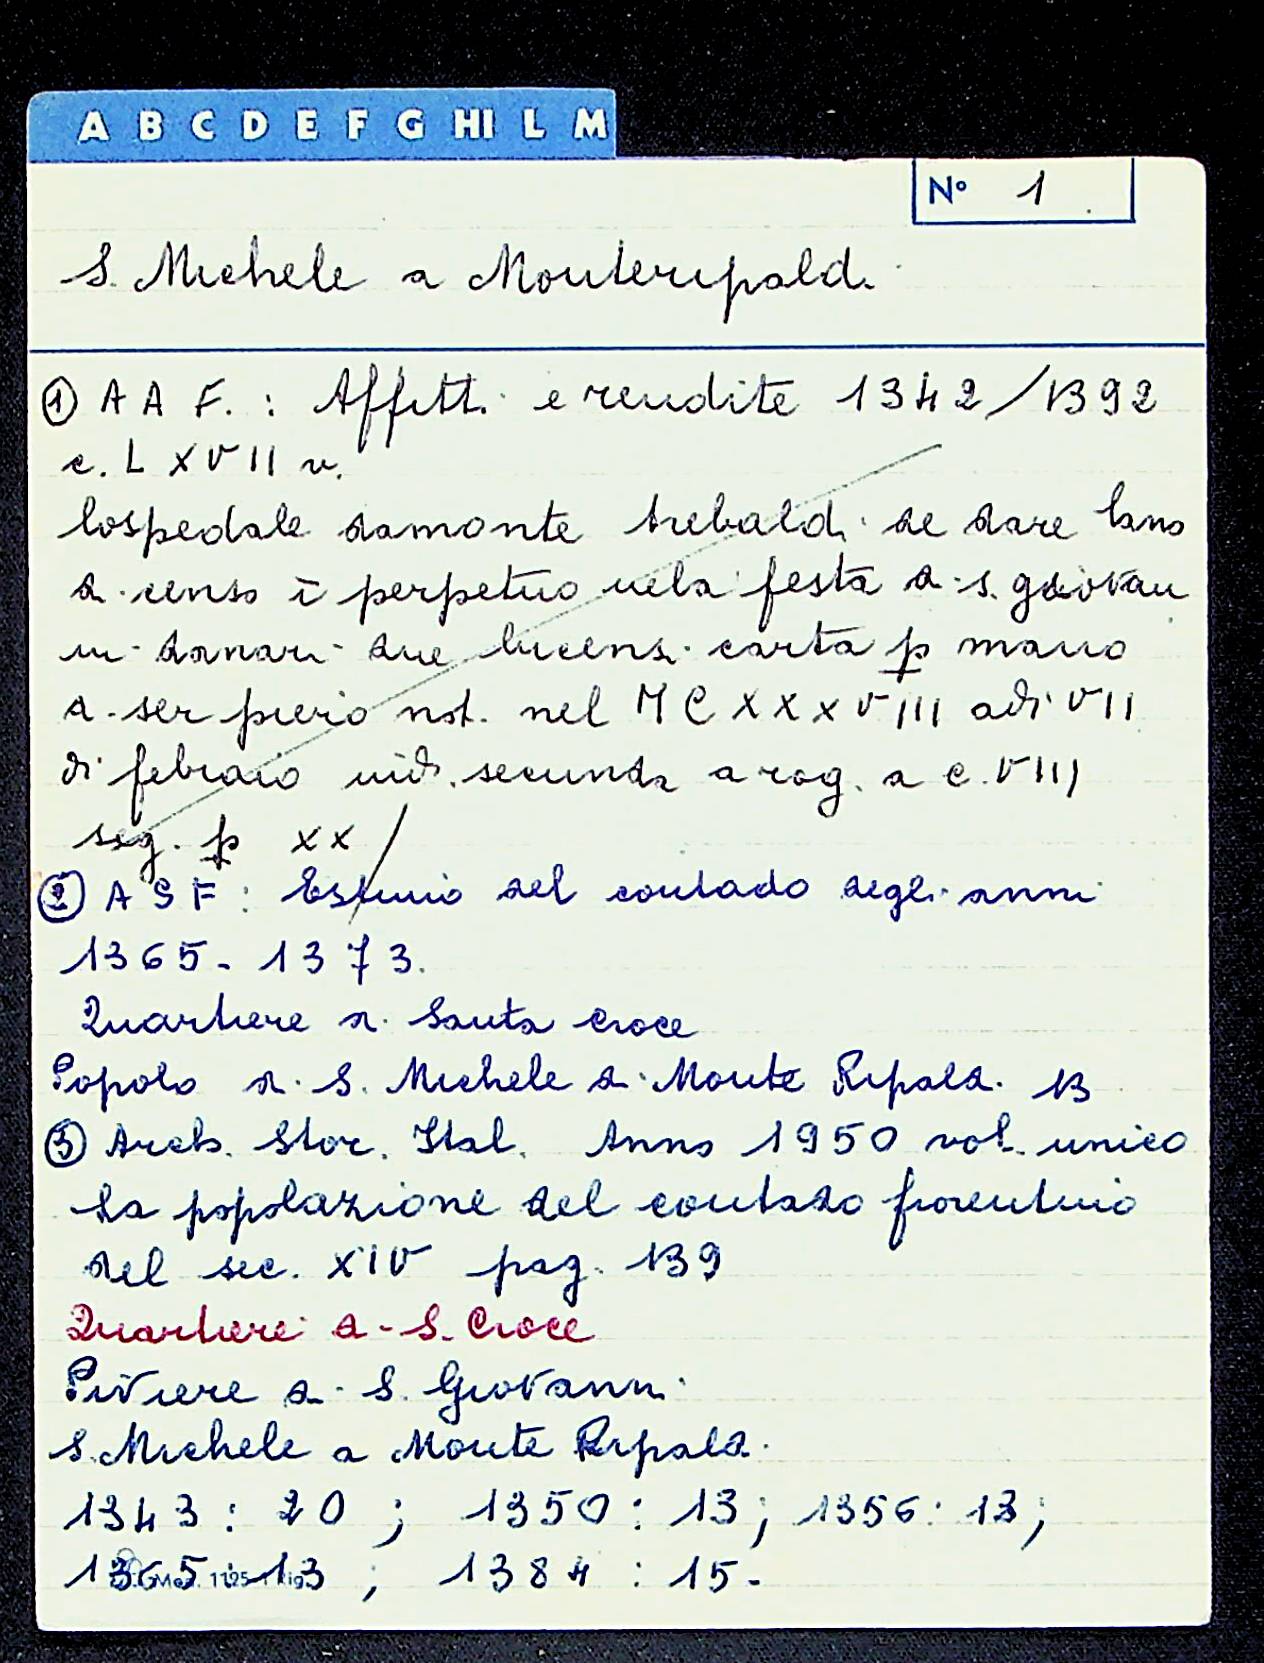 A B C D E F G HI L M
N° 1
S. Michele a Monteripaldi
① A A F. : Affitti e rendite 1342/1392
c. L X V I I v.
lospedale damonte trebaldi de dare lano
di censo ī perpetuo nela festa di s. giovan
ni danari due lucensi carta p mano
di ser piero not. nel M C X X X V I I I adi V I I
di febraio ind. secunda a rog. a c. V I I I
seg. p x x
② A S F : Estimo del contado degli anni
1365 - 1373.
Quartiere di Santa Croce
Popolo di S. Michele a Monte Ripaldi 13
③ Arch. Stor. Ital. Anno 1950 vol. unico
La popolazione del contado fiorentino
del sec. XIV pag. 139
Quartiere di S. Croce
Piviere di S. Giovanni
S. Michele a Monte Ripaldi
1343 : 20 ; 1350 : 13 ; 1356 : 13 ;
1365 : 13 ; 1384 : 15 -